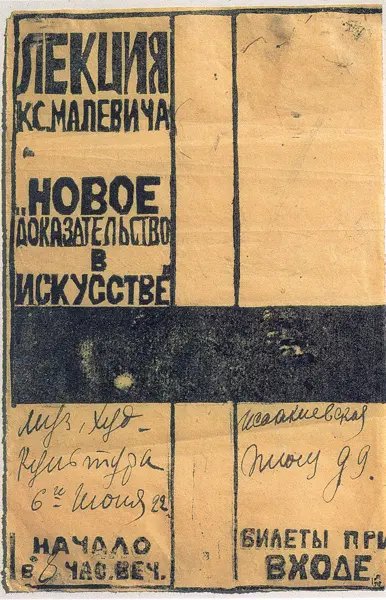 ЛЕКЦИЯ
КС. МАЛЕВИЧА
„НОВОЕ
ДОКАЗАТЕЛЬСТВО
В
ИСКУССТВЕ"
Муз. Худ-
Культура
6го Июня 22.
Исаакиевская
площ 9
НАЧАЛО
В 8 ЧАС. ВЕЧ.
БИЛЕТЫ ПРИ
ВХОДЕ.